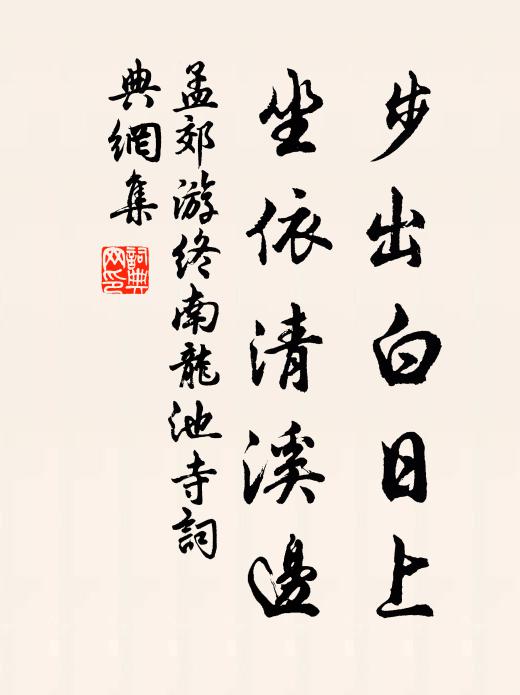 步出白日上
坐依清溪邊
孟郊游終南龍池寺詞
典網集
詞典
网印